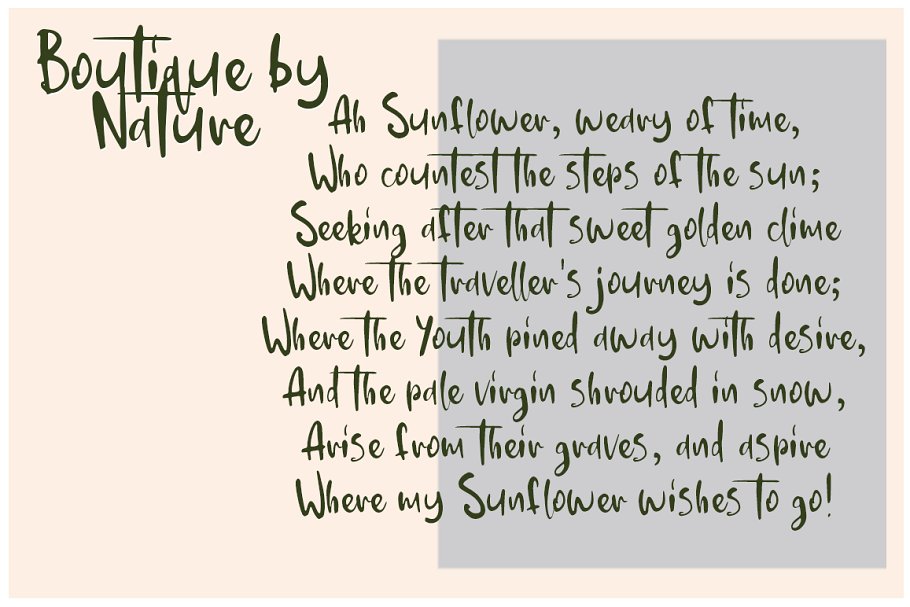 Boutique by
Nature
Ah Sunflower, weary of time,
Who countest the steps of the sun;
Seeking after that sweet golden clime
Where the traveller's journey is done;
Where the Youth pined away with desire,
And the pale virgin shrouded in snow,
Arise from their graves, and aspire
Where my Sunflower wishes to go!